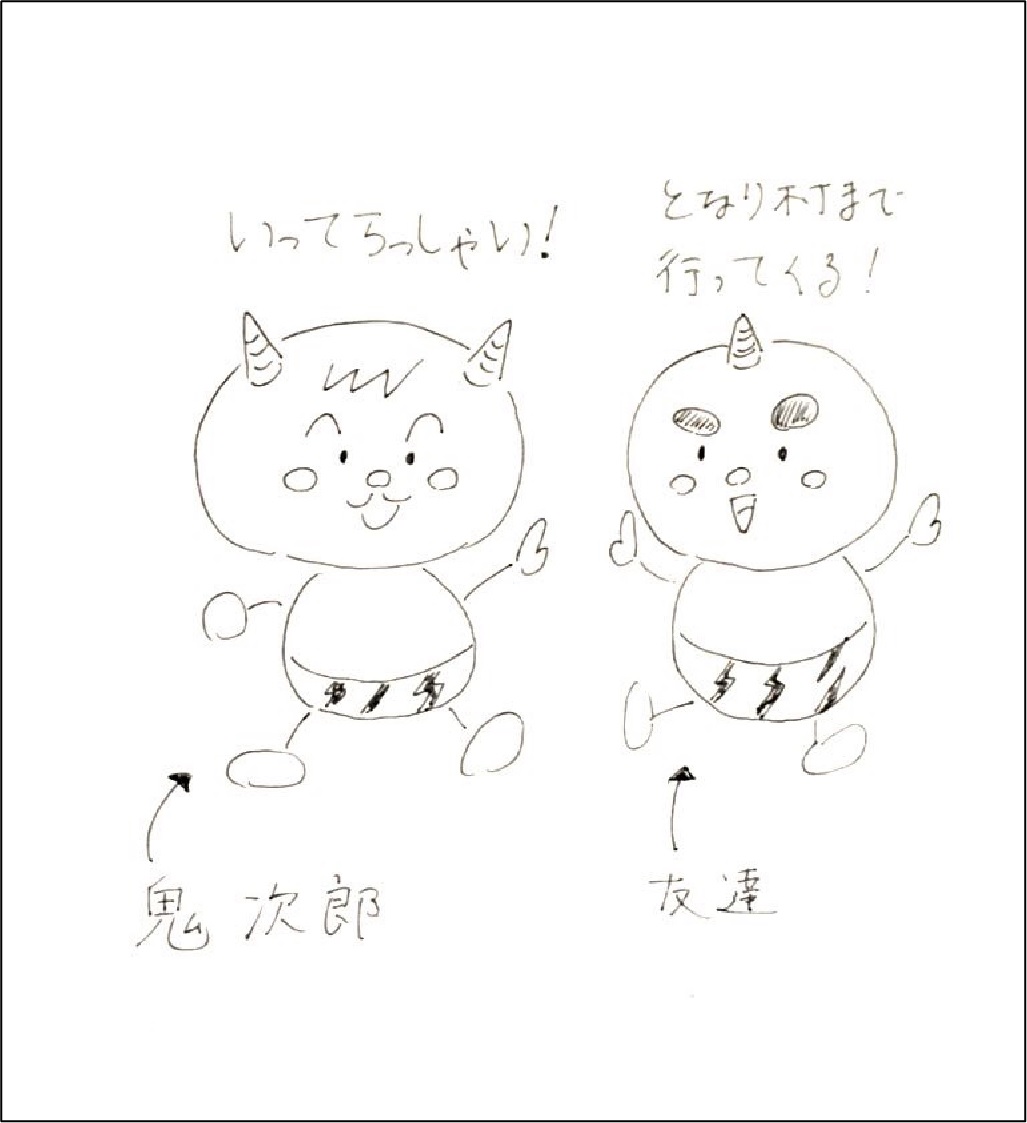 いってらっしゃい！
となり村まで
行ってくる！
鬼次郎
友達